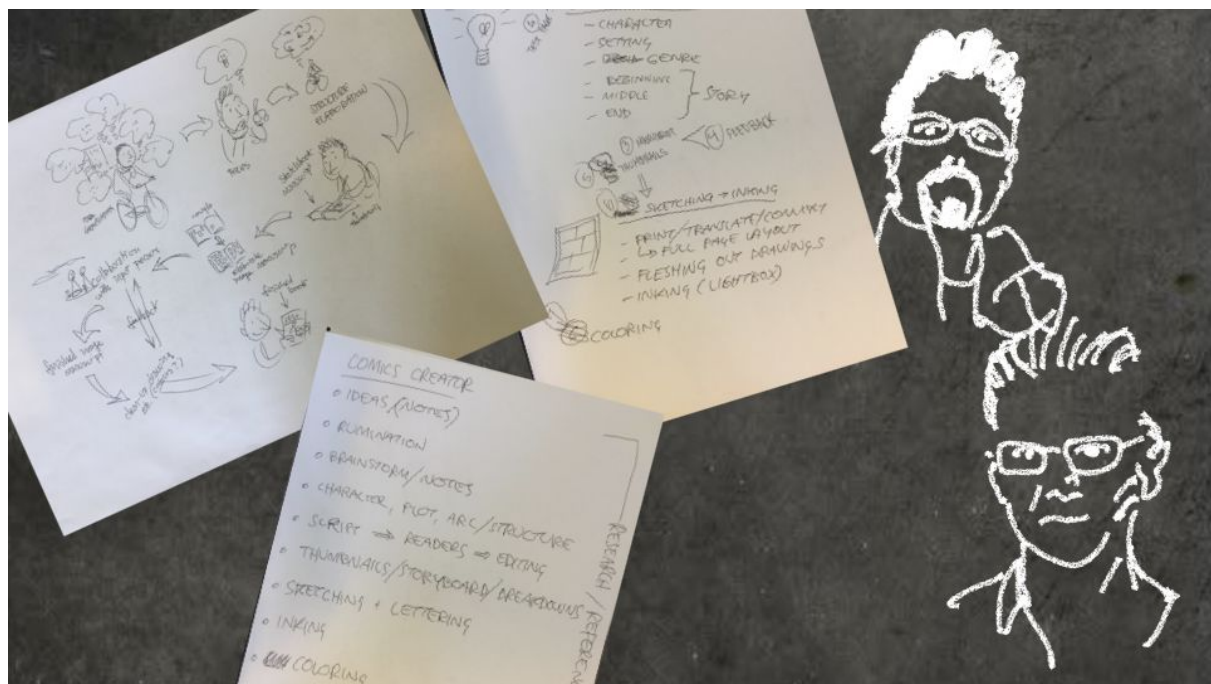 IDEAS
STRUCTURE
ELABORATION
sketching
collaboration
with other persons
feedback
finished image
manuscript
finished
- CHARACTER
- SETTING
- GENRE
- BEGINNING
- MIDDLE
- END
STORY
THUMBNAILS
FEEDBACK
SKETCHING → INKING
- PRINT/TRANSLATE/CONVERT
↳ FULL PAGE LAYOUT
- FLESHING OUT DRAWINGS
- INKING (LIGHTBOX)
COLORING
COMICS CREATOR
• IDEAS (NOTES)
• RUMINATION
• BRAINSTORM/NOTES
• CHARACTER, PLOT, ARC/STRUCTURE
• SCRIPT ⇒ READERS ⇒ EDITING
• THUMBNAILS/STORYBOARD/BREAKDOWNS
• SKETCHING + LETTERING
• INKING
• COLORING
RESEARCH / REFERENC